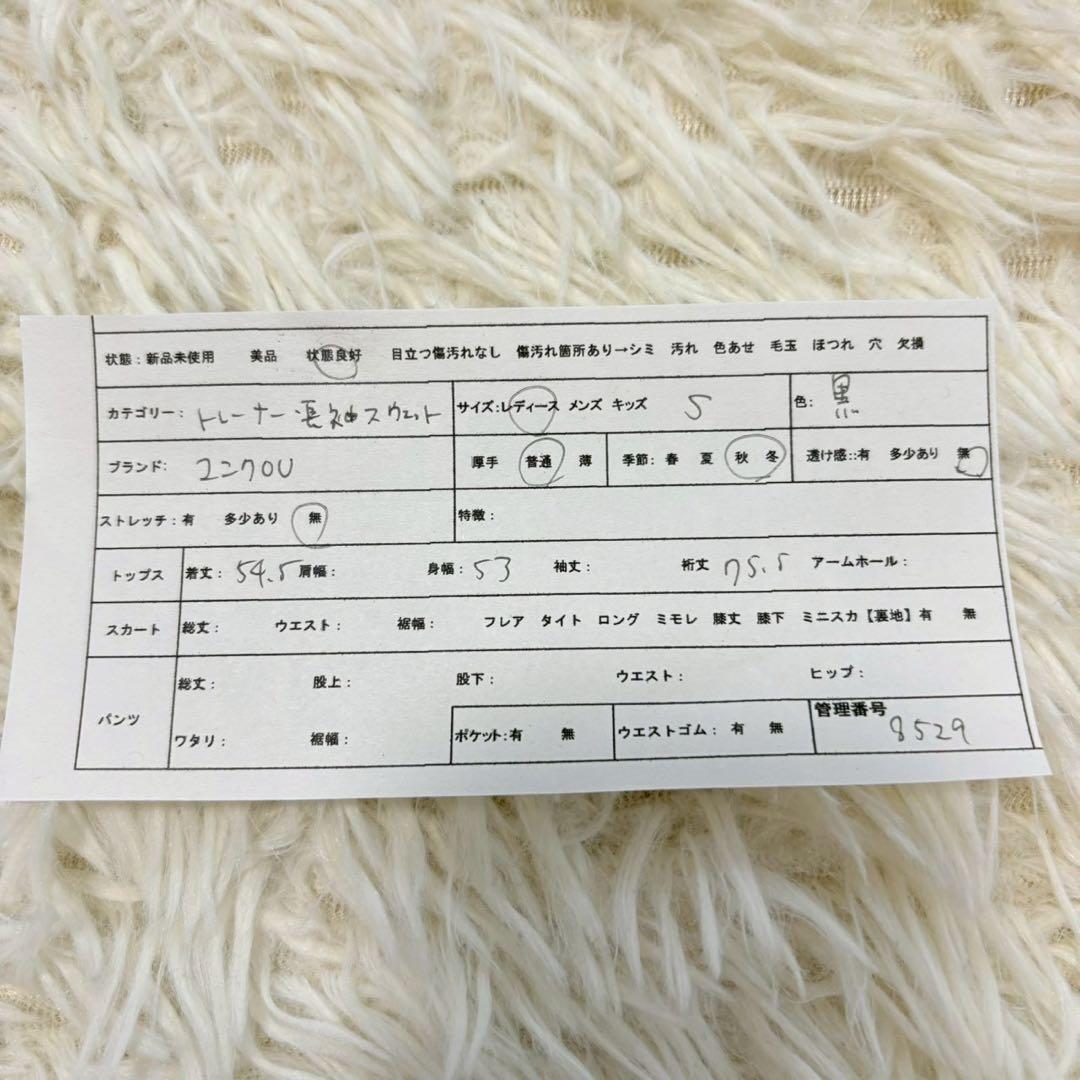 状態：新品未使用 美品 状態良好 目立つ傷汚れなし 傷汚れ箇所あり→シミ 汚れ 色あせ 毛玉 ほつれ 穴 欠損
カテゴリー：トレーナー・長袖スウェット サイズ:レディース メンズ キッズ S 色: 黒
ブランド: ユニクロU 厚手 普通 薄 季節：春 夏 秋 冬 透け感::有 多少あり 無
ストレッチ：有 多少あり 無 特徴：
トップス 着丈：54.5 肩幅： 身幅：53 袖丈： 裄丈 75.5 アームホール：
スカート 総丈： ウエスト： 裾幅： フレア タイト ロング ミモレ 膝丈 膝下 ミニスカ【裏地】有 無
パンツ 総丈： 股上： 股下： ウエスト： ヒップ：
ワタリ： 裾幅： ポケット:有 無 ウエストゴム：有 無 管理番号 8529